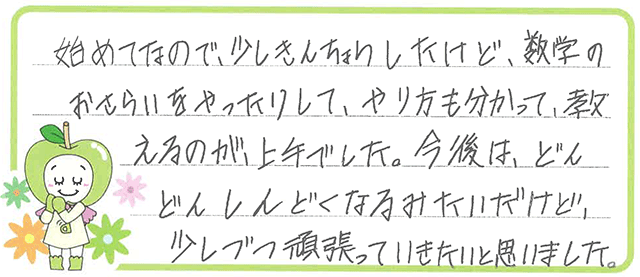 始めてなので、少しきんちょりしたけど、数学の
おさらいをやったりして、やり方も分かって、教
えるのが、上手でした。今後は、どん
どんしんどくなるみたいだけど、
少しづつ頑張っていきたいと思いました。